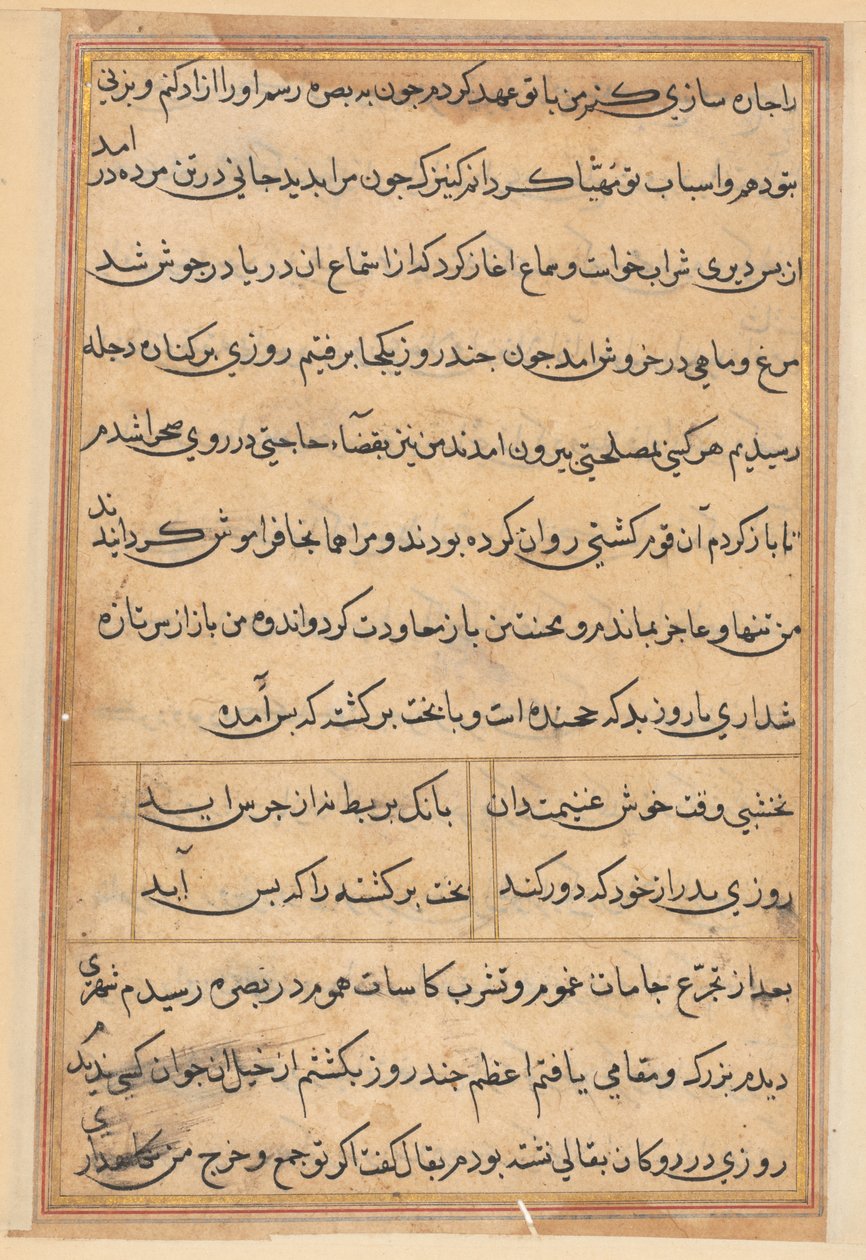 را جاره سازي كنم من با تو عهد كردم جون به بصره رسم او را ازاد كنم و بزني
بتو دهم و اسباب تو مُهيّا كردانم كنيزك جون مرا بديد جاني در تن مرده در امد
از بس ديري شراب خواست و سماع اغاز كرد كه از استماع ان دريا در جوش شد
مرغ و ماهي در خروش امد جون جند روز يكجا برفتيم روزي بر كناره دجله
رسيديم هر كسي بمصلحتي بيرون امدند من نيز بقضآء حاجتي در روي صحرا شدم
تا باز كردم آن قوم كشتي روان كرده بودند و مرا همانجا فراموش كردانيدند
من تنها و عاجز بماندم و محنت من باز معاودت كرد و اندوه من باز از سر تازه
شد اري با روز بد كه است و با بخت بركشته كه بس آمده
نخشبي وقت خوش غنيمت دان بانك بربط نه از جرس ايد
روزي بد را از خود كه دور كند بخت بركشته را كه بس آيد
بعد از تجرّع جامات غموم و تشرب كاسات هموم در بصره رسيدم شهري
ديدم بزرك و مقامي يافتم اعظم جند روز بكشتم از خيل ان جوان كسي نديدم
روزي در دوكان بقالي نشسته بودم بقال كفت اكر تو جمع و خرج من